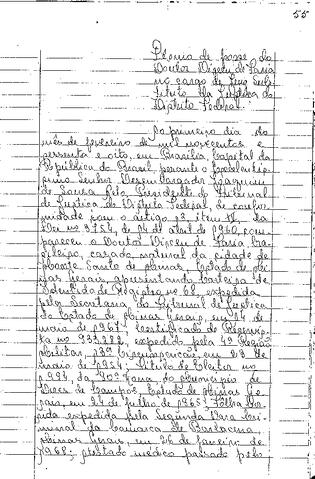 55
Termo de posse do
Doutor Dirceu de Faria
no cargo de Juiz Subs-
tituto da Justiça do
Distrito Federal.
Ao primeiro dia do
mês de fevereiro de mil novecentos e
sessenta e oito, em Brasília, Capital da
República do Brasil, perante o Excelentís-
simo Senhor Desembargador Joaquim
de Sousa Neto, Presidente do Tribunal
de Justiça do Distrito Federal, de confor-
midade com o artigo 13, item II, da
Lei nº 3.754, de 14 de abril de 1960, com-
pareceu o Doutor Dirceu de Faria, bra-
sileiro, casado, natural da cidade de
Monte Santo de Minas, Estado de Mi-
nas Gerais, apresentando Carteira de
Identidade de Registro nº 68, expedida
pela Secretaria do Tribunal de Justiça
do Estado de Minas Gerais, em 24 de
maio de 1967; Certificado de Reservis-
ta nº 933.222, expedido pela 4ª Região
Militar, 13ª Circunscrição, em 23 de
maio de 1954; Título de Eleitor nº
1.994, da Zona do Município de
de Campos, Estado de Minas Ge-
rais, em 24 de julho de 1965; Folha Cor-
rida expedida pela Segunda Vara Cri-
minal da Comarca de Barbacena,
Minas Gerais, em 26 de janeiro de
1968; atestado médico passado pelo